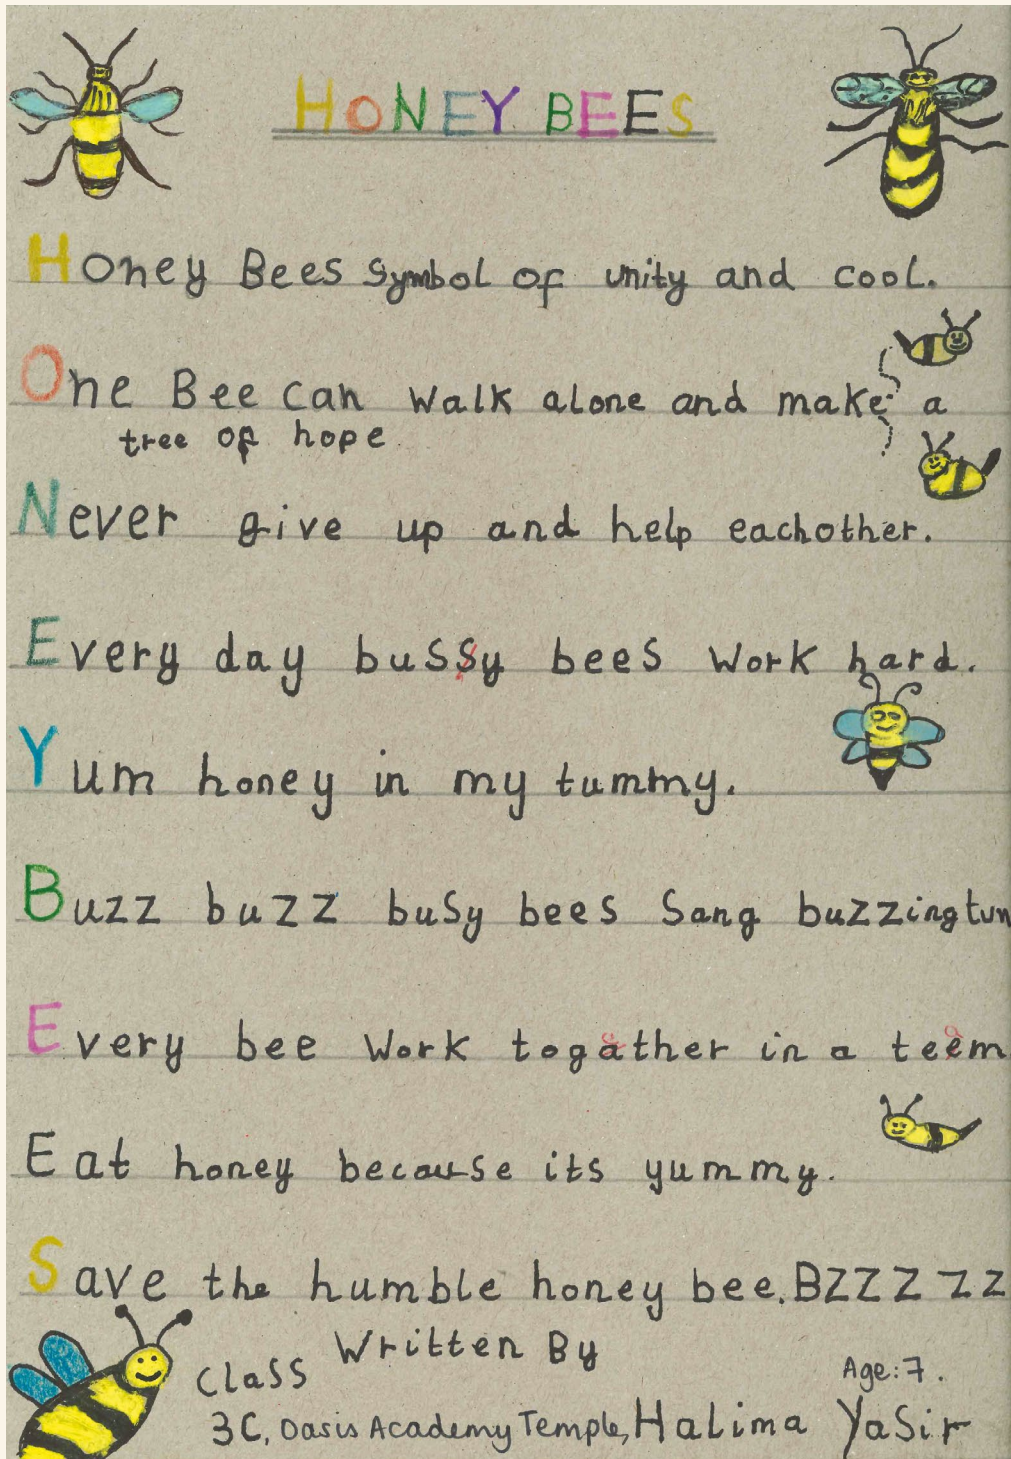 HONEY BEES
Honey Bees symbol of unity and cool.
One Bee can walk alone and make a
tree of hope
Never give up and help eachother.
Every day bussy bees work hard.
Yum honey in my tummy.
Buzz buzz busy bees sang buzzing tun
Every bee work togather in a teem
Eat honey because its yummy.
Save the humble honey bee. BZZZZZ
Written By
Class
Age: 7.
3C, Oasis Academy Temple, Halima Yasir